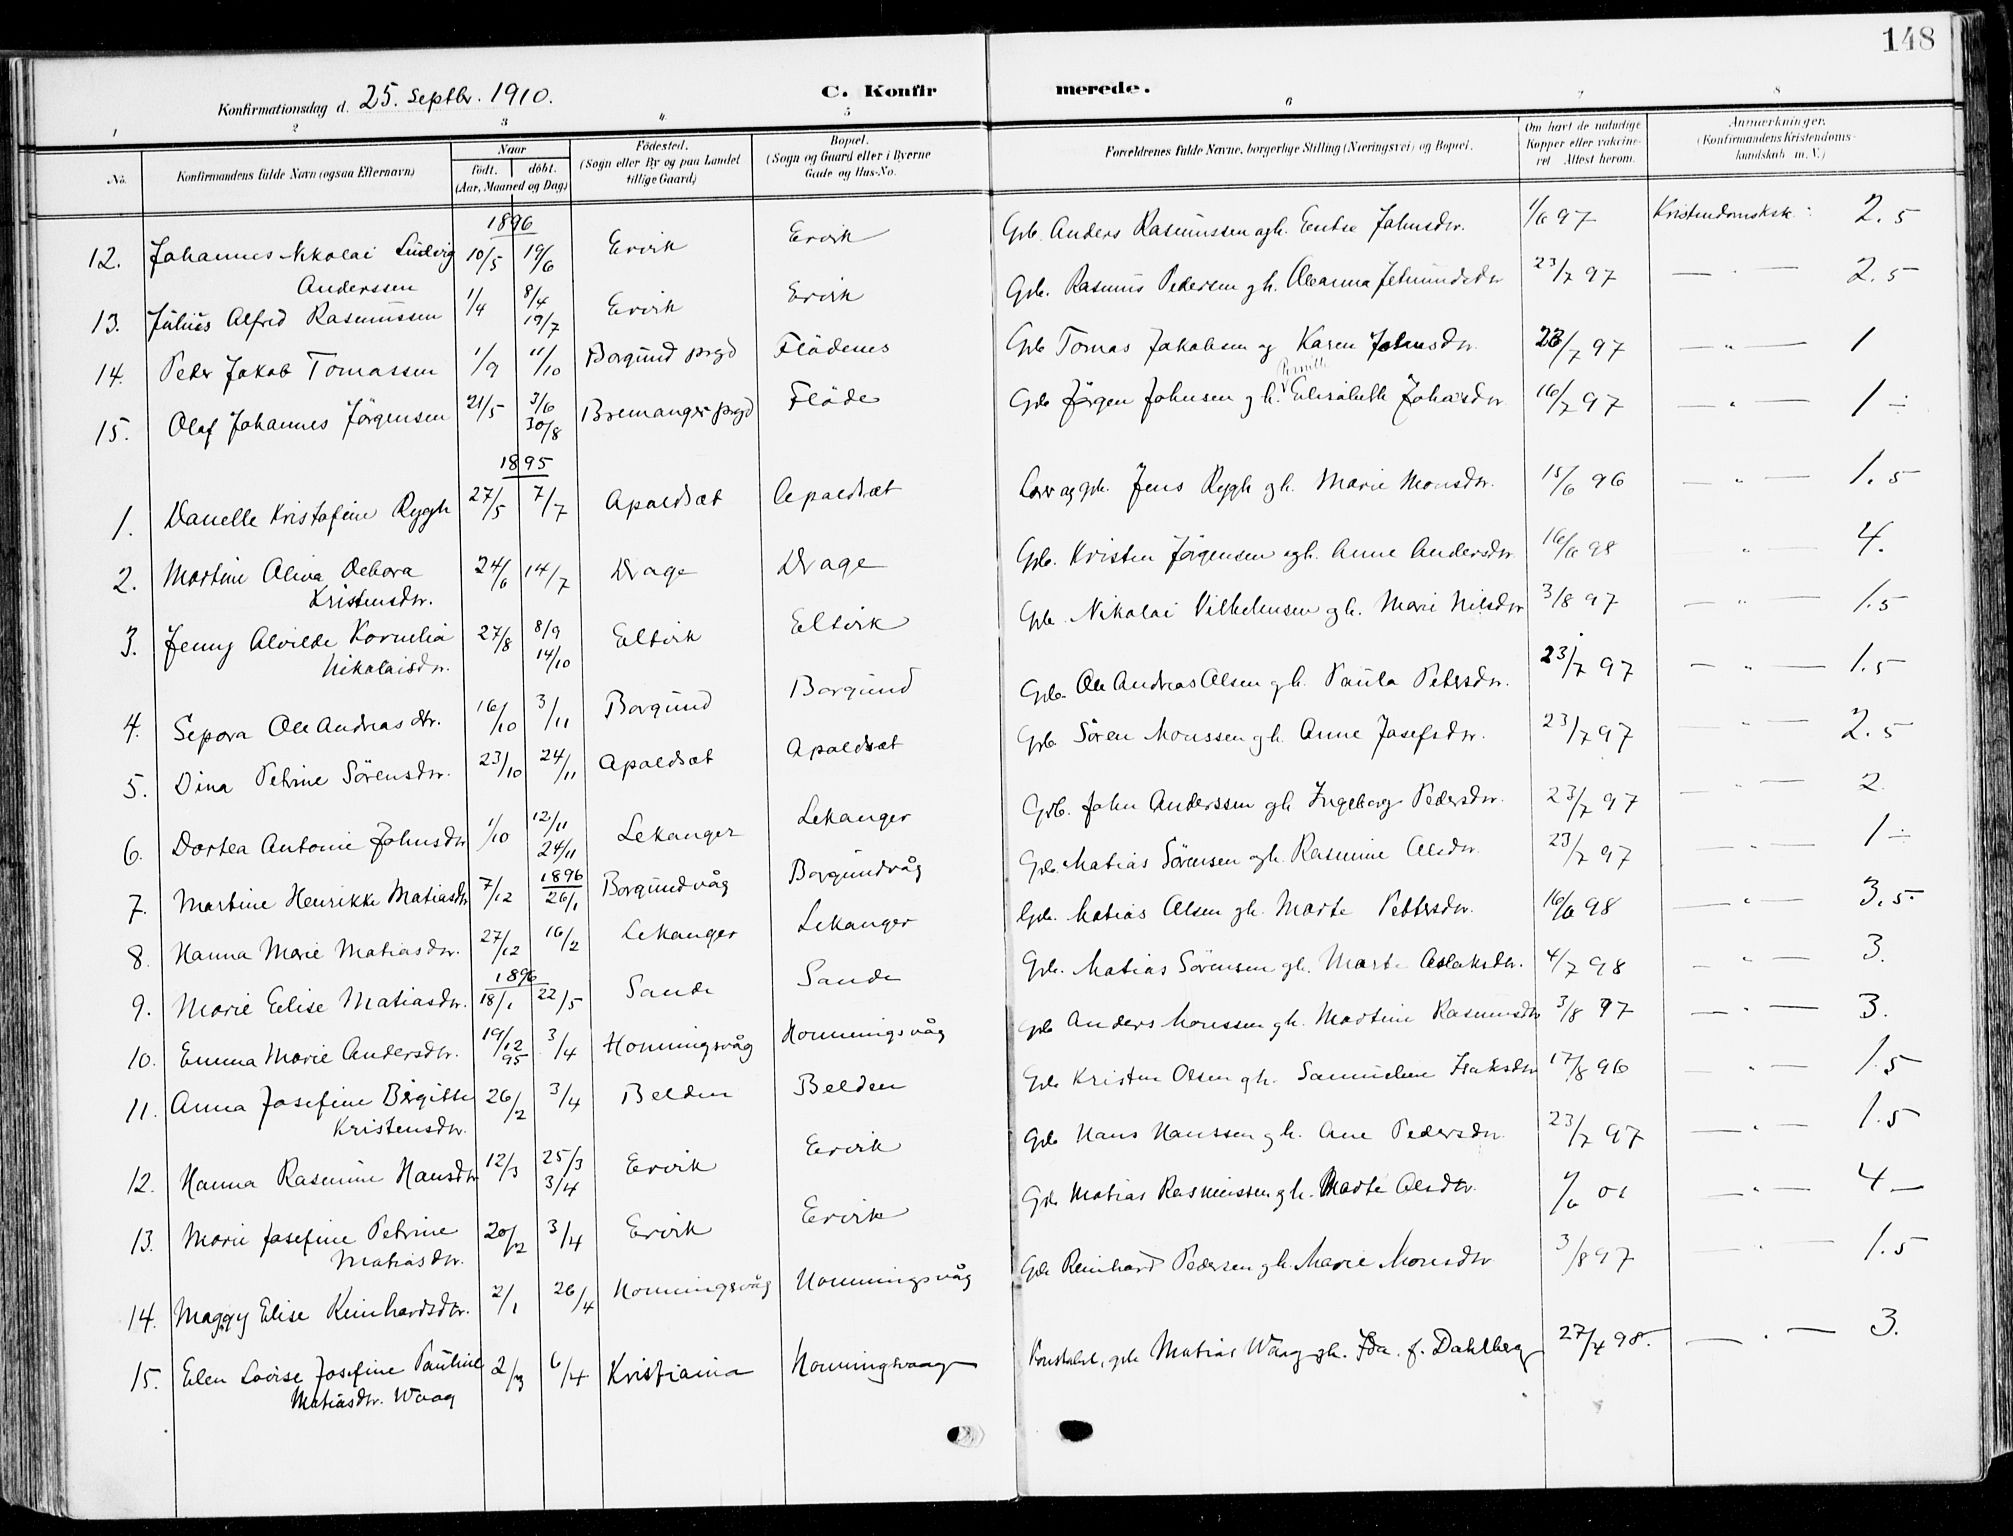 148
Konfirmationsdag d. 25. Septbr. 1910. C. Konfir merede.
1 2 3 4 5 6 7 8
No. Konfirmandens fulde Navn (ogsaa Efternavn) Naar født. døbt. (Aar, Maaned og Dag) Fødested. (Sogn eller By og paa Landet tillige Gaard) Bopæl. (Sogn og Gaard eller i Byerne Gade og Hus-No. Forældrenes fulde Navne, borgerlige Stilling (Næringsvei) og Bopæl. Om havt de naturlige Kopper eller vaksineret. Attest herom. Anmærkninger. (Konfirmandens Kristendomskundskab m. V.)
1896
12. Johannes Nikolai Ludvig 10/5 19/6 Ervik Ervik Gbr. Anders Rasmussen ogh. Johnsdtr. 1/6 97 Kristendomsksk: 2.5
Anderssen
13. Julius Alfred Rasmussen 1/4 8/4 19/7 Ervik Ervik Gbr. Rasmus Pedersen gh. Oleanna Jetmundsdtr 23/7 97 — " — 2.5
14. Peder Jakob Tomassen 1/9 11/10 Borgund prgd Flødenes Gbr Tomas Jakobsen og Karen Johnsdtr. 23/7 97 — " — 1
Pernille
15. Olaf Johannes Jørgensen 21/5 3/6 30/8 Bremanger prgd Fløde Gbr Jørgen Johnsen gh. Elisabeth Johnsdtr 16/7 97 — " — 1 ÷
1895
1. Danelle Kristofine Rygh 27/5 7/7 Apaldsæt Apaldsæt og gbr. Jens Rygh gh. Marie Monsdtr. 15/6 96 — " — 1.5
2. Martine Oliva Debora 24/6 14/7 Drage Drage Gbr. Kristen Jørgensen ogh. Anne Andersdtr. 16/6 98 — " — 4.
Kristensdtr.
3. Jenny Alvilde Kornelia 27/8 8/9 14/10 Eltvik Eltvik Gbr. Nikolai Vilhelmsen gh. Marie Nilsdtr 3/8 97 — " — 1.5
Nikolaisdtr.
4. Sepora Ole Andreasdtr. 16/10 3/11 Borgund Borgund Gbr. Ole Andreas Olsen gh. Paula Petersdtr. 23/7 97 — " — 1.5
5. Dina Petrine Sørensdtr. 23/10 24/11 Apaldsæt Apaldsæt Gbr. Søren Monssen gh. Anne Josefsdtr. 23/7 97 — " — 2.5
6. Dortea Antonie Johnsdtr 1/10 12/11 24/11 Lekanger Lekanger Gbr. John Anderssen gh Ingeborg Pedersdtr. 23/7 97 — " — 2.
7. Martine Henrikke Matiasdtr 7/12 1896 26/1 Borgundvåg Borgundvåg Gbr. Matias Sørensen ogh. Rasmine Olsdtr. 23/7 97 — " — 1 ÷
8. Hanna Marie Matiasdtr. 27/12 16/2 Lekanger Lekanger Gbr. Matias Olsen gh. Marte Pettersdtr. 16/6 98 — " — 3.5.
1896
9. Marie Elise Matiasdtr. 18/1 22/5 Sande Sande Gbr. Matias Sørensen gh. Marte Aslaksdtr. 4/7 98 — " — 3.
10. Emma Marie Andersdtr. 19/12 95 3/4 Honningsvåg Honningsvåg Gbr Anders Monssen gh. Martine Rasmusdtr 3/8 97 — " — 3.
11. Anna Josefine Birgitte 26/2 3/4 Belden Belden Gbr Kristen Olsen gh. Samueline Isaksdtr 17/8 96 — " — 1.5
Kristensdtr.
12. Hanna Rasmine Hansdtr 12/3 25/3 3/4 Ervik Ervik Gbr Hans Hanssen gh. Ane Pedersdtr. 23/7 97 — " — 1.5
13. Marie Josefine Petrine 20/2 3/4 Ervik Ervik Gbr Matias Rasmussen gh. Marte Olsdtr. 01 — " — 4 —
Matiasdtr.
14. Maggy Elise Reinhardsdtr. 2/1 26/4 Honningsvåg Honningsvåg Gbr Reinhard Pedersen gh. Marie Monsdtr 3/8 97 — " — 1.5
15. Elen Lovise Josefine Pauline 2/3 6/4 Kristiania Honningsvaag gbr Matias Waag gh. Ida f. Dahlberg 27/4 98. — " — 3.
Matiasdtr. Waag